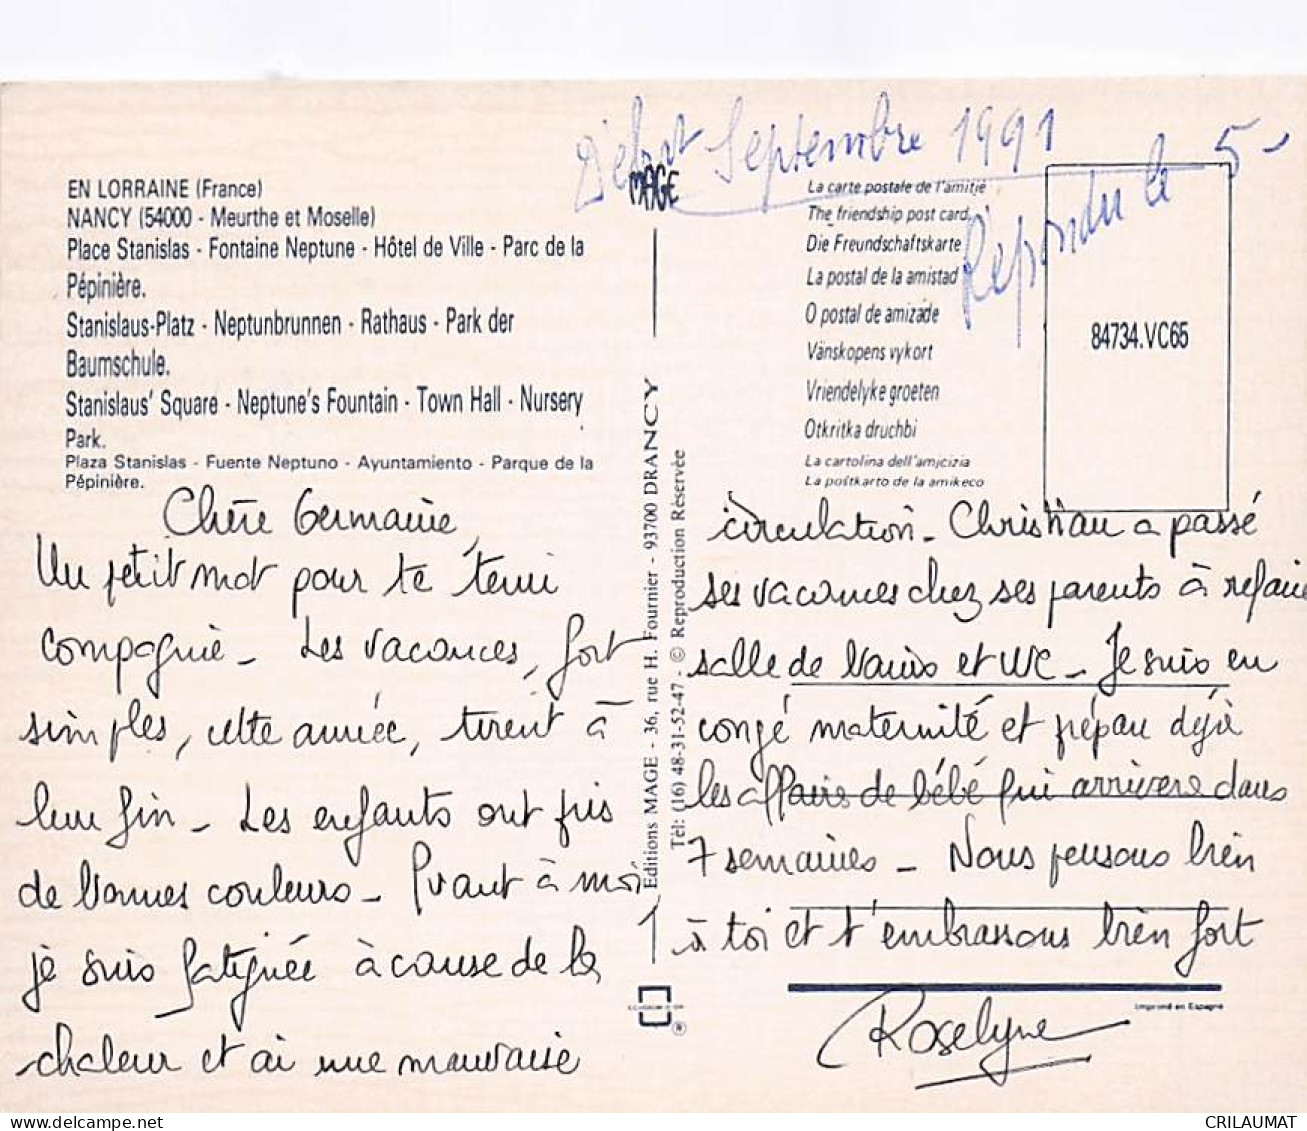 Début Septembre 1991
Répondu le 5-
EN LORRAINE (France)
NANCY (54000 - Meurthe et Moselle)
Place Stanislas - Fontaine Neptune - Hôtel de Ville - Parc de la
Pépinière.
Stanislaus-Platz - Neptunbrunnen - Rathaus - Park der
Baumschule.
Stanislaus' Square - Neptune's Fountain - Town Hall - Nursery
Park.
Plaza Stanislas - Fuente Neptuno - Ayuntamiento - Parque de la
Pépinière.
Chère Germaine,
Un petit mot pour te tenir
compagnie - Les vacances, fort
simples, cette année, tirent à
leur fin - Les enfants ont pris
de bonnes couleurs - Quant à moi
je suis fatiguée à cause de la
chaleur et ai une mauvaise
MAGE
Editions MAGE - 36, rue H. Fournier - 93700 DRANCY
Tél: (16) 48-31-52-47 - © Reproduction Réservée
®
La carte postale de l'amitié
The friendship post card
Die Freundschaftskarte
La postal de la amistad
O postal de amizade
Vänskopens vykort
Vriendelyke groeten
Otkritka druchbi
La cartolina dell'amicizia
La poŝtkarto de la amikeco
84734.VC65
circulation - Christian a passé
ses vacances chez ses parents à refaire
salle de bains et WC - Je suis en
congé maternité et prépare déjà
les affaires de bébé qui arrivera dans
7 semaines - Nous pensons bien
à toi et t'embrassons bien fort
Roselyne
Imprimé en Espagne
delcampe.net
CRILAUMAT